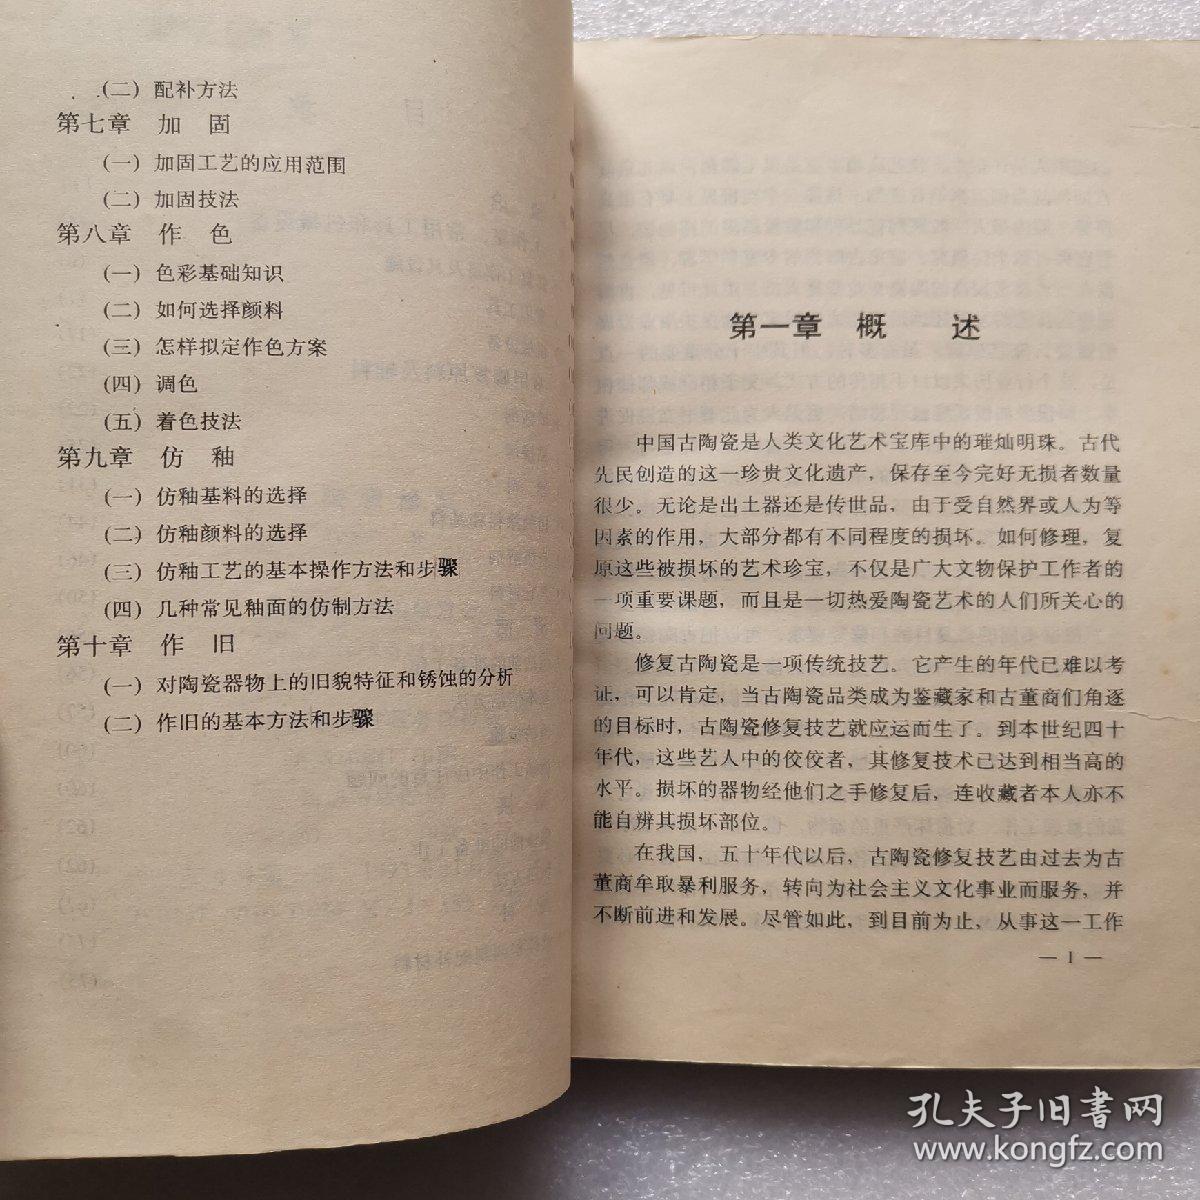 (二) 配补方法
第七章 加 固
(一) 加固工艺的应用范围
(二) 加固技法
第八章 作 色
(一) 色彩基础知识
(二) 如何选择颜料
(三) 怎样拟定作色方案
(四) 调色
(五) 着色技法
第九章 仿 釉
(一) 仿釉基料的选择
(二) 仿釉颜料的选择
(三) 仿釉工艺的基本操作方法和步骤
(四) 几种常见釉面的仿制方法
第十章 作 旧
(一) 对陶瓷器物上的旧貌特征和锈蚀的分析
(二) 作旧的基本方法和步骤
第一章 概 述
中国古陶瓷是人类文化艺术宝库中的璀灿明珠。古代
先民创造的这一珍贵文化遗产，保存至今完好无损者数量
很少。无论是出土器还是传世品，由于受自然界或人为等
因素的作用，大部分都有不同程度的损坏。如何修理，复
原这些被损坏的艺术珍宝，不仅是广大文物保护工作者的
一项重要课题，而且是一切热爱陶瓷艺术的人们所关心的
问题。
修复古陶瓷是一项传统技艺。它产生的年代已难以考
证，可以肯定，当古陶瓷品类成为鉴藏家和古董商们角逐
的目标时，古陶瓷修复技艺就应运而生了。到本世纪四十
年代，这些艺人中的佼佼者，其修复技术已达到相当高的
水平。损坏的器物经他们之手修复后，连收藏者本人亦不
能自辨其损坏部位。
在我国，五十年代以后，古陶瓷修复技艺由过去为古
董商牟取暴利服务，转向为社会主义文化事业而服务，并
不断前进和发展。尽管如此，到目前为止，从事这一工作
— 1 —
孔夫子旧书网
www.kongfz.com